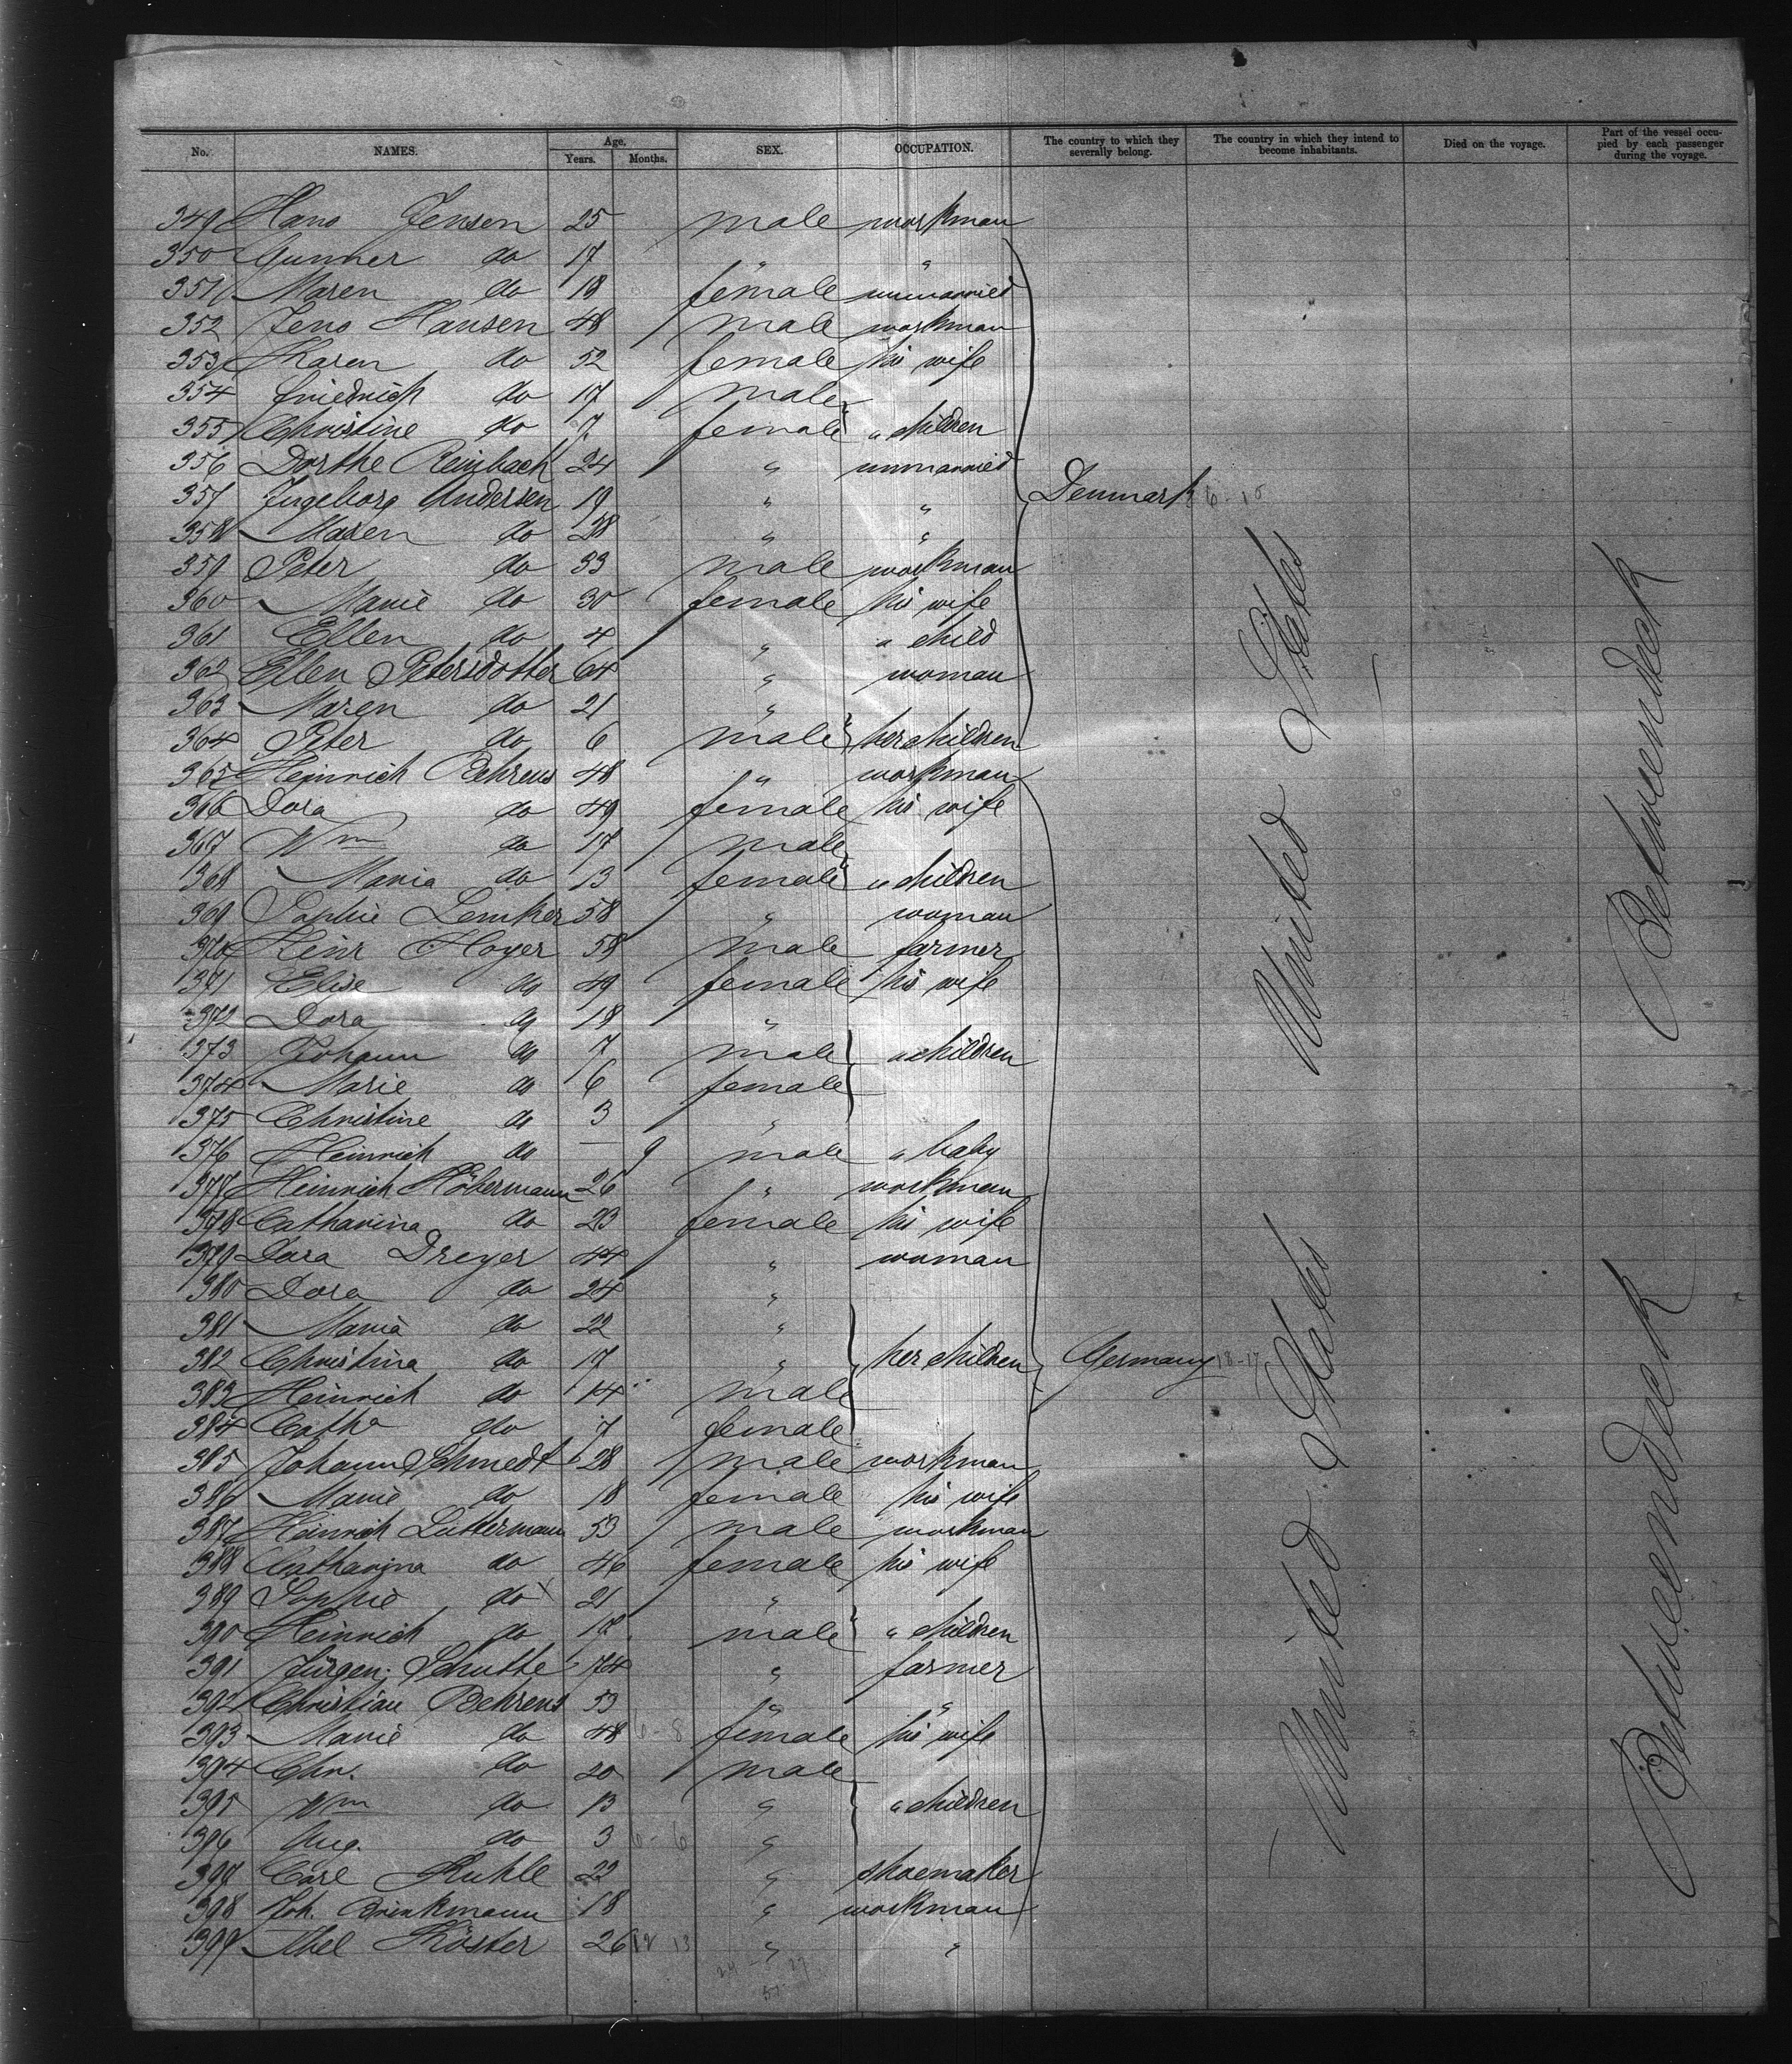 No. NAMES. Age. Years. Months. SEX. OCCUPATION. The country to which they severally belong. The country in which they intend to become inhabitants. Died on the voyage. Part of the vessel occupied by each passenger during the voyage.
349 Hans Jensen 25 male workman
350 Gunner do 17 " "
351 Maren do 18 female unmarried
352 Jens Hansen 48 male workman
353 Karen do 52 female his wife
354 Friedrich do 17 male
355 Christine do 7 female " children
356 Dorthe Reinbach 24 " unmarried
357 Ingeborg Andersen 19 " " Denmark 6-10
358 Maren do 28 " "
359 Peter do 33 male workman
360 Marie do 30 female his wife
361 Ellen do 4 " " child
362 Ellen Petersdotter 64 " woman
363 Maren do 21 "
364 Peter do 6 male her children
365 Heinrich Behrens 48 " workman
366 Dora do 49 female his wife
367 Wm do 17 male
368 Maria do 13 female " children
369 Sophie Lemker 58 " woman
370 Heinr Hoyer 58 male farmer
371 Elise do 49 female his wife
372 Dora do 18 "
373 Johann do 7 male " children
374 Marie do 6 female
375 Christine do 3 "
376 Heinrich do — 9 male " baby
377 Heinrich Höbermann 26 " workman
378 Catharina do 23 female his wife
379 Dora Dreyer 44 " woman
380 Dora do 24 "
381 Maria do 22 "
382 Christina do 17 " her children Germany 18-17
383 Heinrich do 14 male
384 Catha do 7 female
385 Johann Schmedt 28 male workman
386 Marie do 18 female his wife
387 Heinrich Lüttermann 53 male workman
388 Catharina do 46 female his wife
389 Sophie do x 21 "
390 Heinrich do 18 male " children
391 Jürgen Schutte 74 " farmer
392 Christian Behrens 53 " "
393 Marie do 48 6-8 female his wife
394 Chr. do 20 male
395 Wm do 13 " " children
396 Aug. do 3 6-6 "
397 Carl Kuhle 22 " shoemaker
398 Joh. Brinkmann 18 " workman
399 Abel Köster 26 12 13 " "
24 - 27
51
United States
United States
Betweendeck
Betweendeck